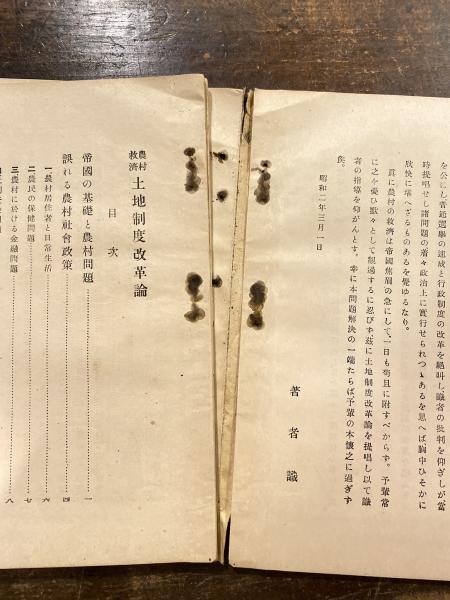 を公にし普通選擧の速成と行政制度の改革を絶叫し、識者の批判を仰ぎしが當
時提唱せし諸問題の著々政治上に實行せられつゝあるを思へば、胸中ひそかに
欣快に堪へざるものあるを覺ゆるなり。
眞に農村の救濟は帝國焦眉の急にして、一日も苟且に附すべからず。予輩常
に之を憂ひ默々として觀過するに忍びず茲に土地制度改革論を提唱し以て識
者の指導を仰がんとす。幸に本問題解決の一端たらば、予輩の本懷之に過ぎず
矣。
昭和二年三月一日
著者識
農村救濟 土地制度改革論
目次
帝國の基礎と農村問題………一
誤れる農村社會政策………四
一 農村居住者と日常生活………六
二 農民の保健問題………七
三 農村に於ける金融問題………八